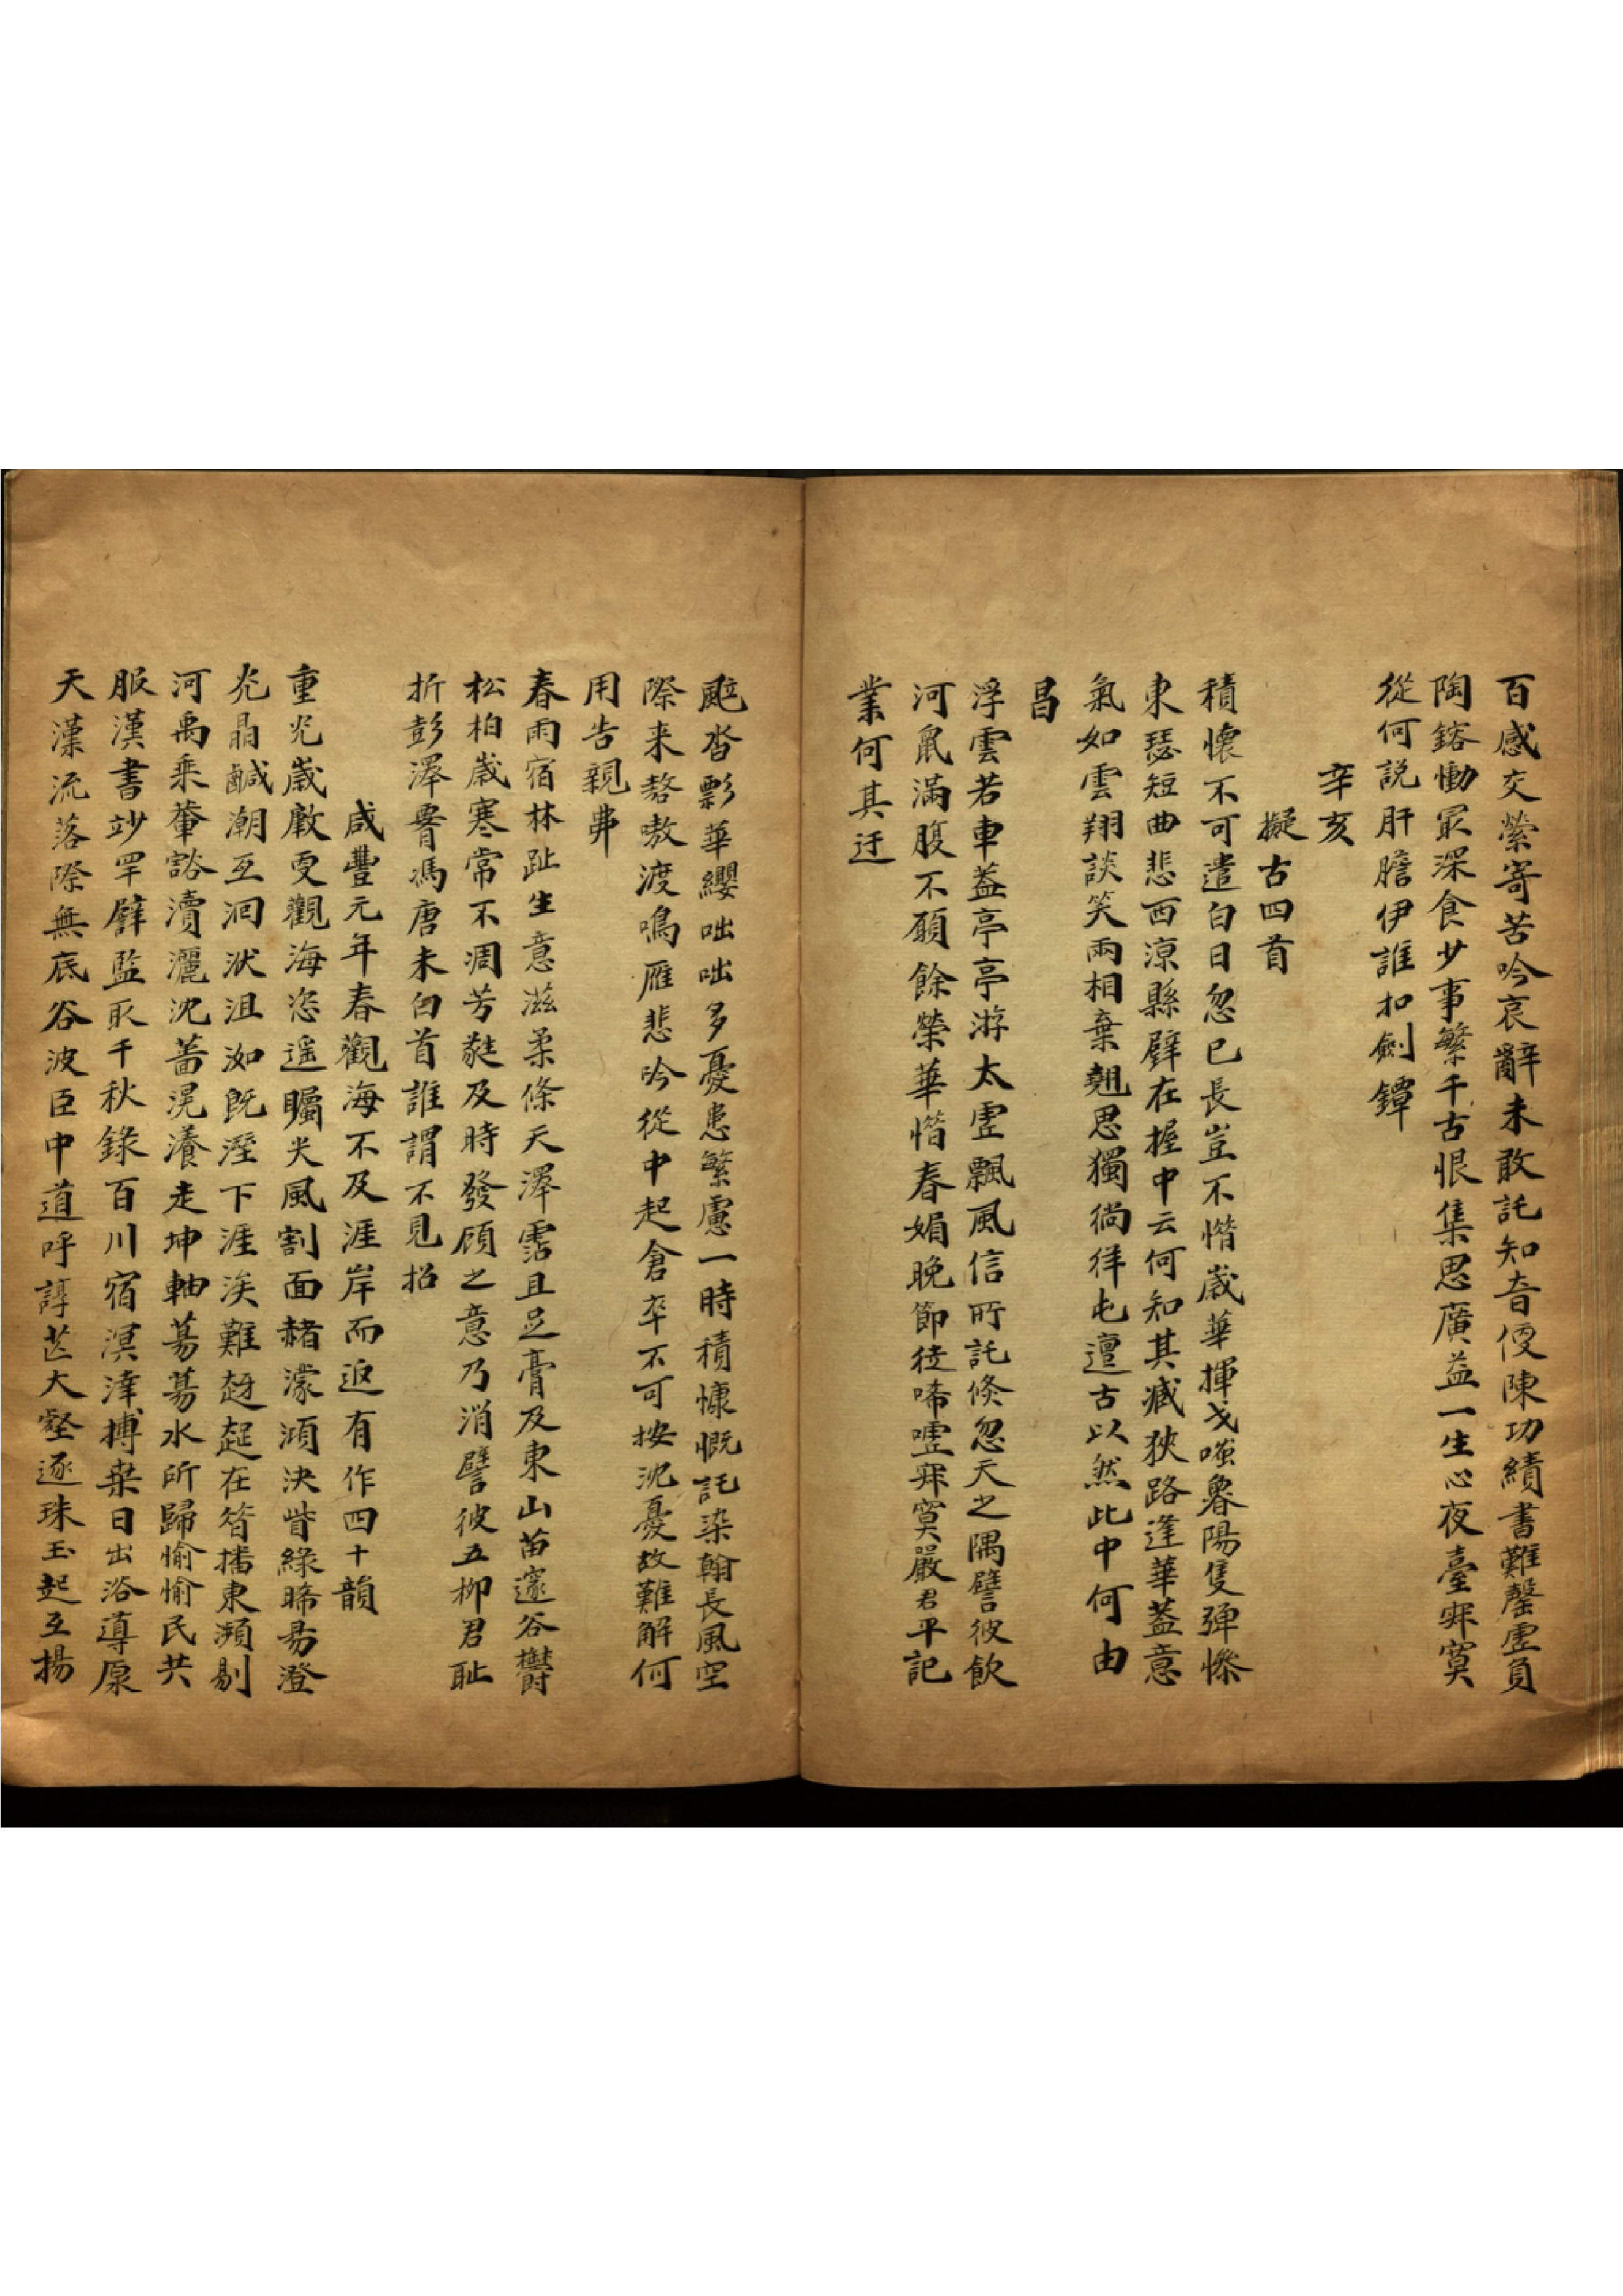 百感交縈寄苦吟哀辭未敢託知音便陳功績書難罄虛負
陶鎔慟最深食少事繁千古恨集思廣益一生心夜臺寂寞
從何說肝膽伊誰扣劍鐔
辛亥
擬古四首
積懷不可遣白日忽已長豈不惜歲華揮戈嗤魯陽隻彈慘
東瑟短曲悲西涼縣璧在握中云何知其臧狹路逢華蓋意
氣如雲翔談笑兩相棄翹思獨徜徉屯邅古以然此中何由
昌
浮雲若車蓋亭亭游太虛飄風信所託倏忽天之隅譬彼飲
河鼠滿腹不願餘榮華惜春媚晚節徒唏噓寂寞嚴君平記
業何其迂
颭沓髟華纓咄咄多憂患繁慮一時積慷慨託染翰長風空
際来嗸嗷渡鳴雁悲吟從中起倉卒不可按沈憂故難解何
用告親串
春雨宿林趾生意滋柔條天澤霑且足膏及東山苗邃谷欝
松柏歲寒常不凋芳蕤及時發顧之意乃消譬彼五柳君恥
折彭澤胥馮唐未白首誰謂不見招
咸豐元年春觀海不及涯岸而返有作四十韻
重光歲敵叓觀海恣遥矚尖風割面赭濛澒決眥綠晞昜澄
光晶鹹潮互洄洑沮洳既溼下涯涘難趦趄在昝播東瀕剔
河禹乘蕫谽瀆灑沈菑滉瀁走坤軸蕩蕩水所歸愉愉民共
服漢書竗罕辟監取千秋錄百川宿溟涬摶桒日出浴導原
天漢流落際無底谷波臣中道呼諄芒大壑逐珠玉起互揚